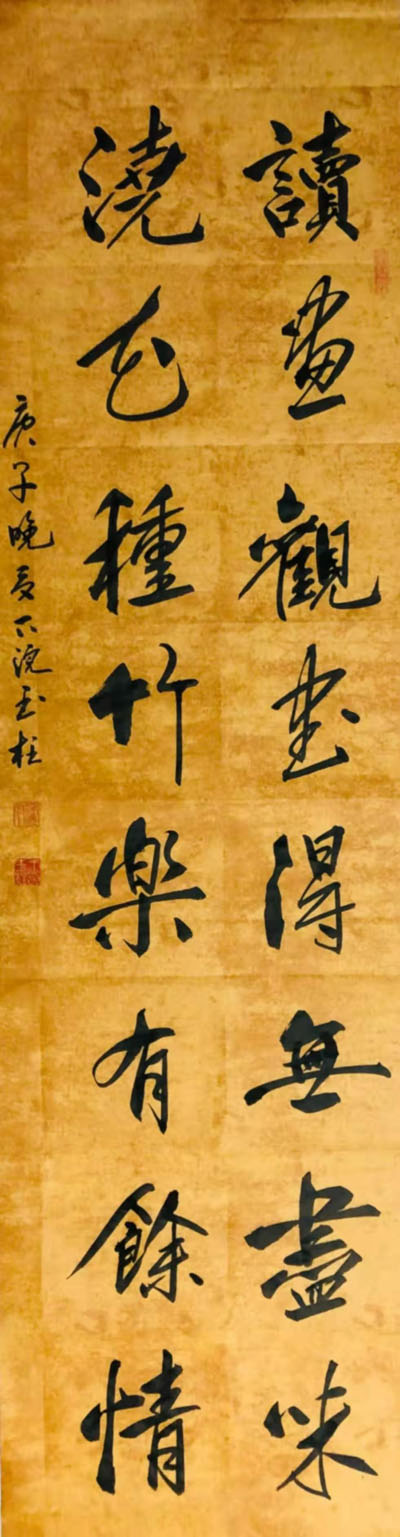 讀畫觀書得無盡味
澆花種竹樂有餘情
庚子晚夏 玉柱